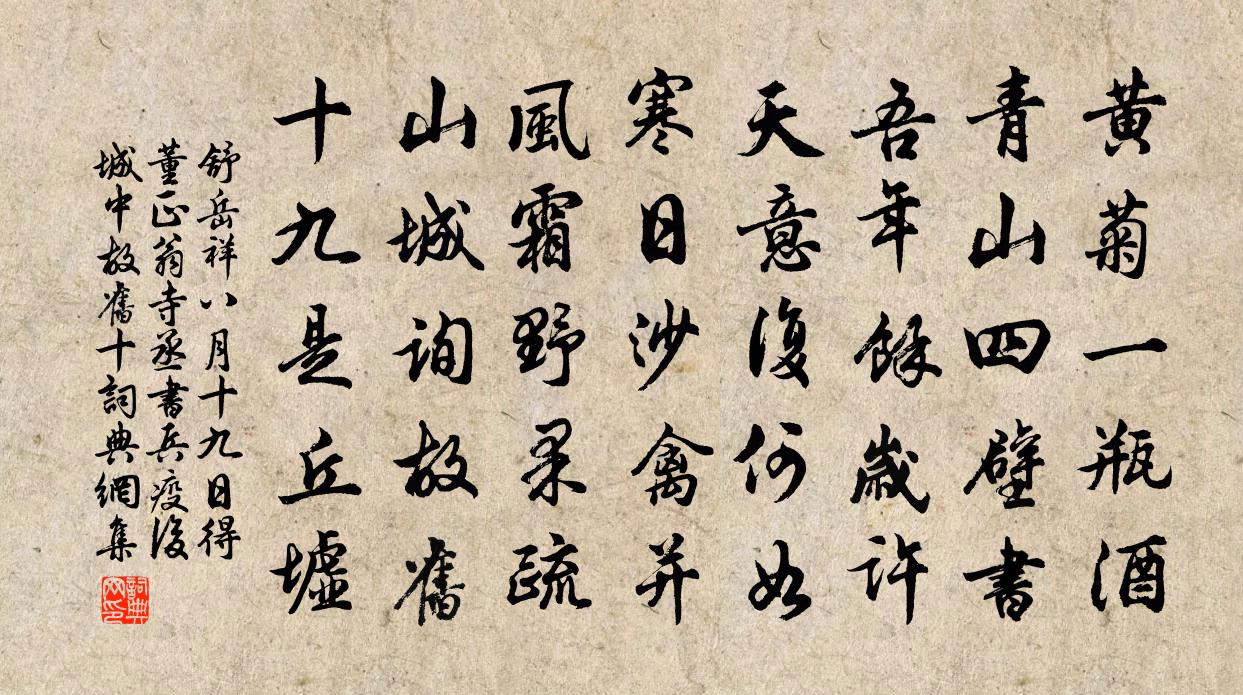 黄菊一瓶酒
青山四壁書
吾年餘歲許
天意復何如
寒日沙禽并
風霜野果疏
山城詢故舊
十九是丘墟
舒岳祥八月十九日得
董正翁寺丞書兵疫後
城中故舊十詞典網集
詞典
网印